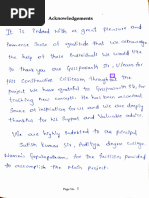 Acknowledgements
It is Indeed with a great pleasure and
immense sense of gratitude that we acknowledge
the help of these Individuals. We would like
to thank you our Guruparanath Sir, Viharu for
his Constructive Criticism through the
project. We have grateful to Guruparanath Sir, for
teaching how samyath. He has been unlimited
source of inspiration for us and we are deeply
thankful to his support and valuable advice.
We are highly Indebted to the principal
Satish Kumar Sir, Aditya degree College
for the facilities provided
to accomplish the Main project.
Page No: